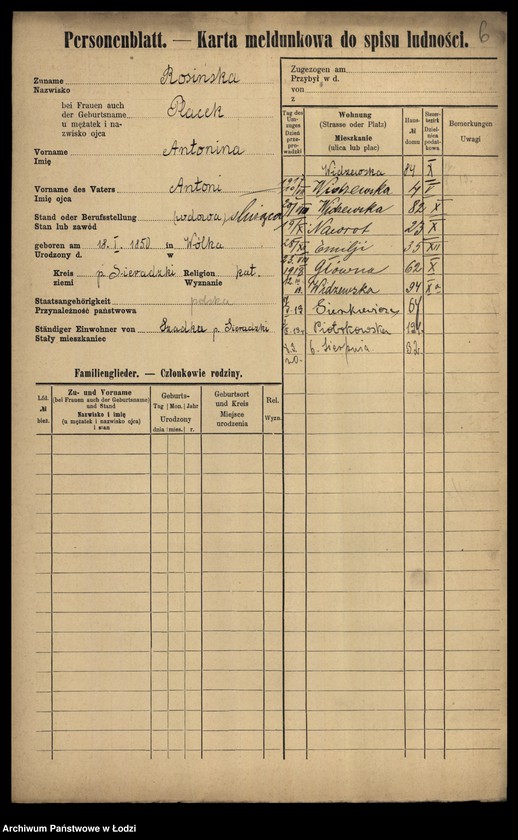 6
Personenblatt. — Karta meldunkowa do spisu ludności.
Zuname Rosińska
Nazwisko
bei Frauen auch
der Geburtsname Placek
u mężatek i na-
zwisko ojca
Vorname Antonina
Imię
Vorname des Vaters Antoni
Imię ojca
Stand oder Berufsstellung (wdowa) służąca
Stan lub zawód
geboren am 18. I. 1850 in Wólka
Urodzony d. w
Kreis p. Sieradzki Religion kat.
ziemi Wyznanie
Staatsangehörigkeit polska
Przynależność państwowa
Ständiger Einwohner von Szadku p. Sieradzki
Stały mieszkaniec
Familienglieder. — Członkowie rodziny.
Lfd. № bież.
Zu- und Vorname
(bei Frauen auch der Geburtsname)
und Stand
Nazwisko i imię
(u mężatek i nazwisko ojca)
i stan
Geburts-
Tag Mon. Jahr
Urodzony
dnia mies. r.
Geburtsort
und Kreis
Miejsce
urodzenia
Rel.
Wyzn.
Zugezogen am
Przybył w d.
von
z
Tag des Um-zuges Dzień prze-prowadzki
Wohnung
(Strasse oder Platz)
Mieszkanie
(ulica lub plac)
Haus- № domu
Steuer-bezirk Dziel-nica podat-kowa
Bemerkungen
Uwagi
Widzewska 84 X
Widzewska 4
Widzewska 82 X
19/X Nawrot 23 X
Emilji 35 XII
1918 Główna 62 X
Widzewska 94 X
Sienkiewicza 67
Piotrkowska 121
6. Sierpnia 32
Archiwum Państwowe w Łodzi